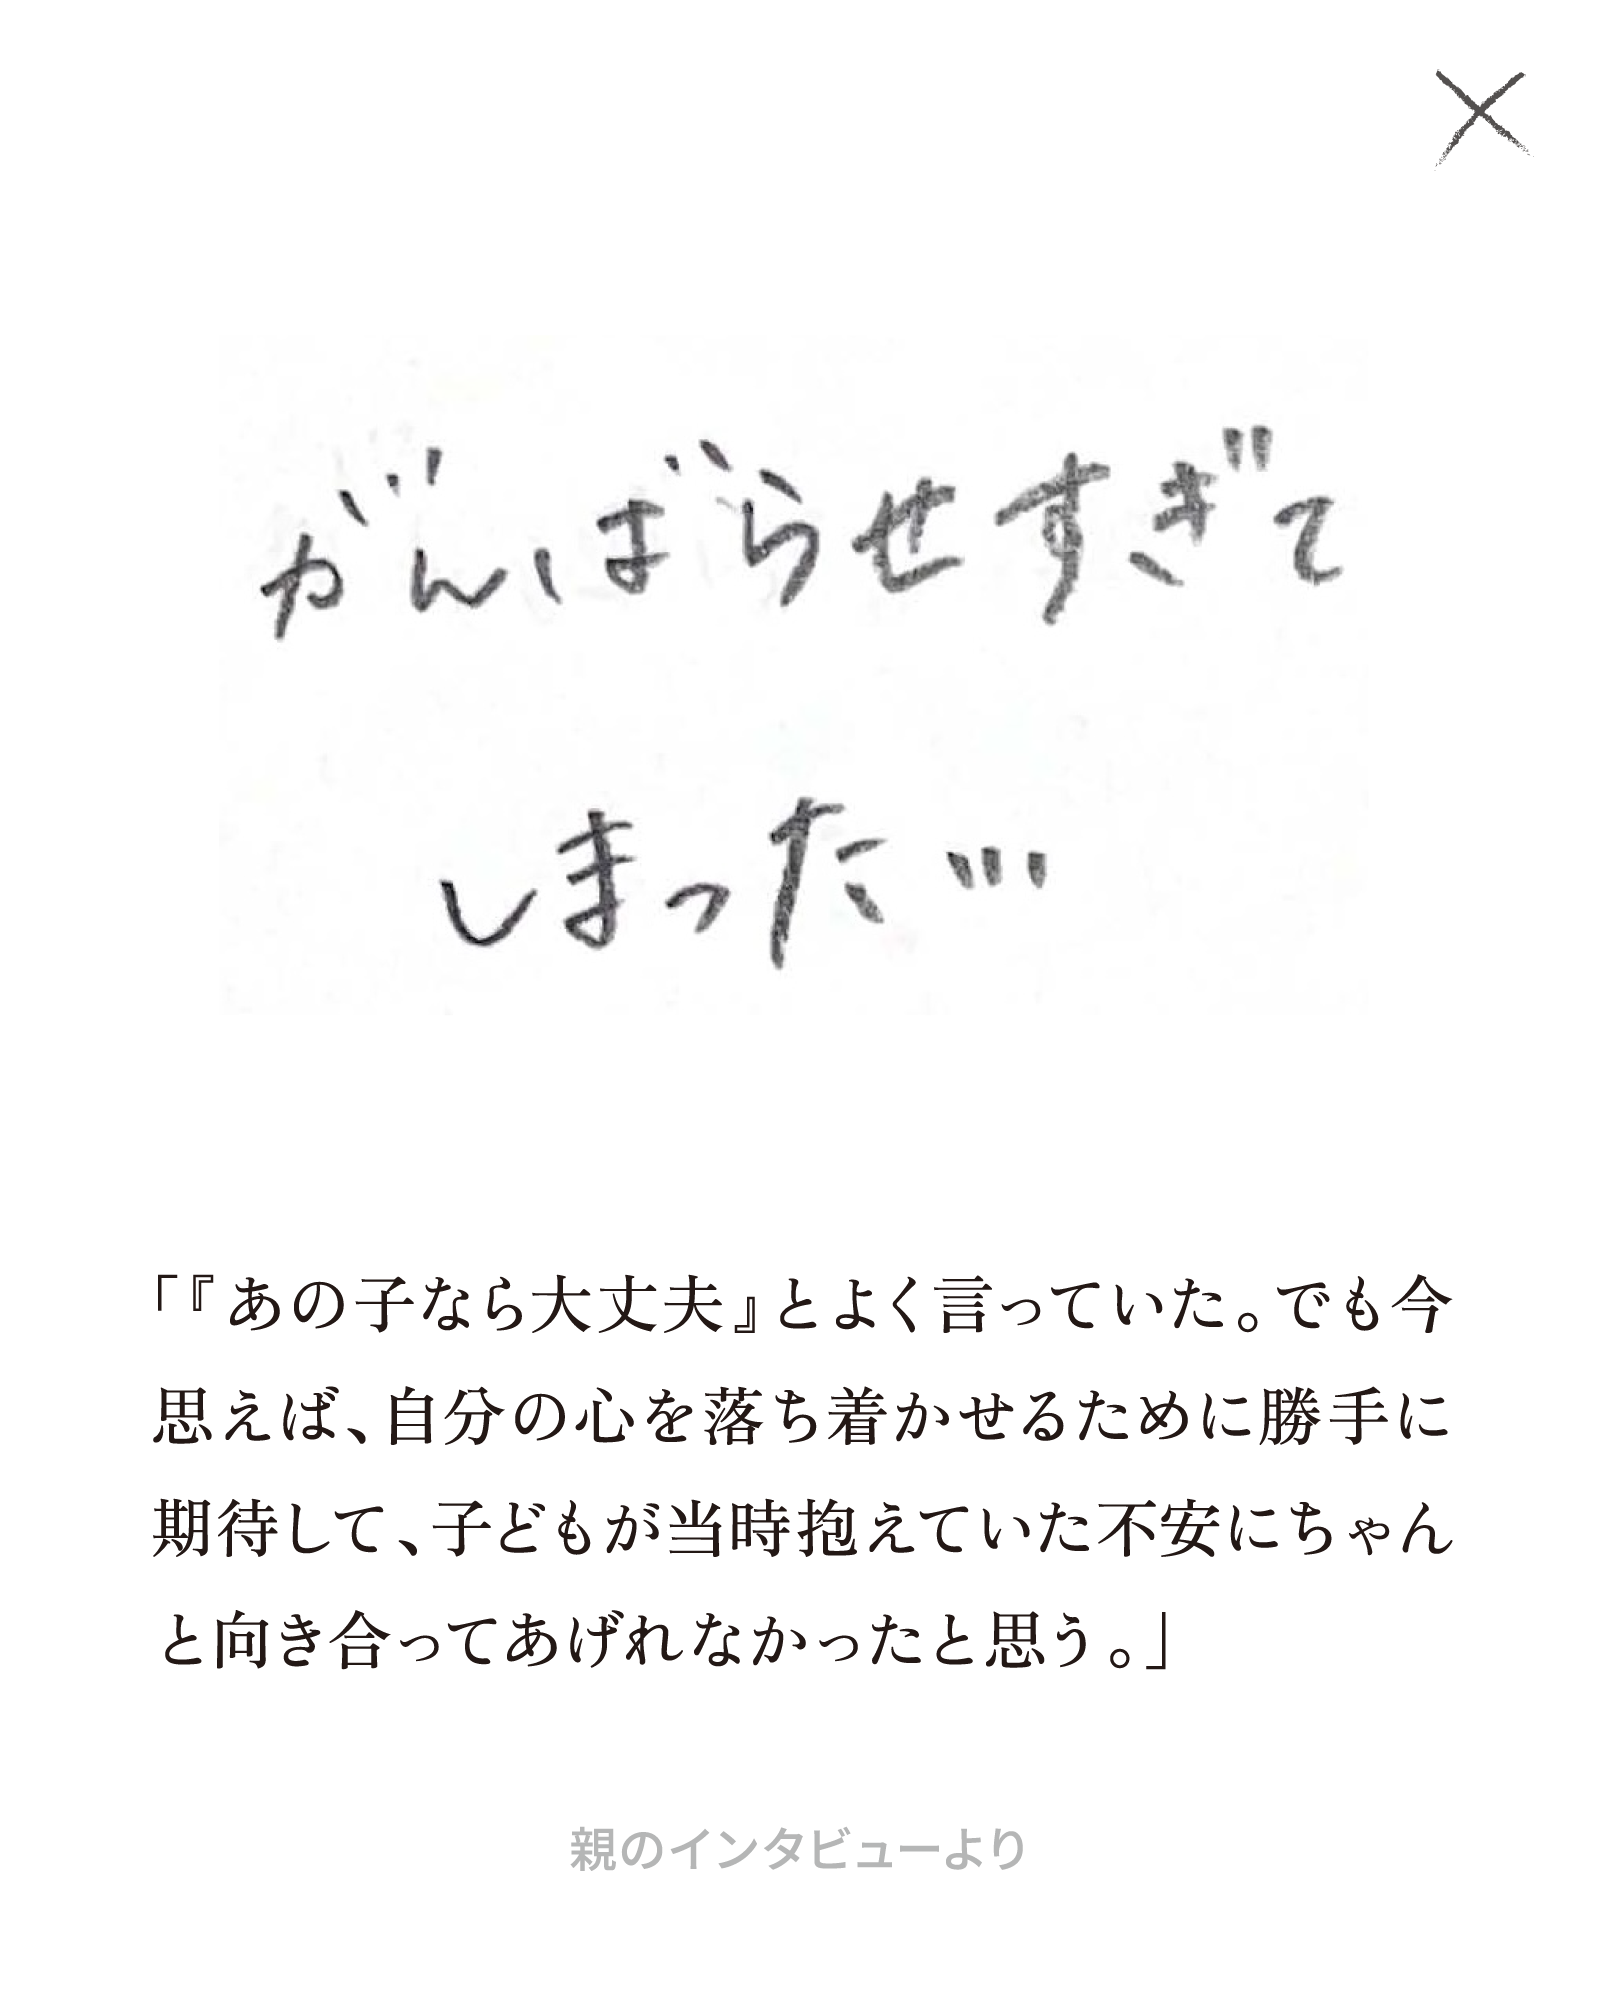 がんばらせすぎて
しまった…
「『あの子なら大丈夫』とよく言っていた。でも今
思えば、自分の心を落ち着かせるために勝手に
期待して、子どもが当時抱えていた不安にちゃん
と向き合ってあげれなかったと思う。」
親のインタビューより